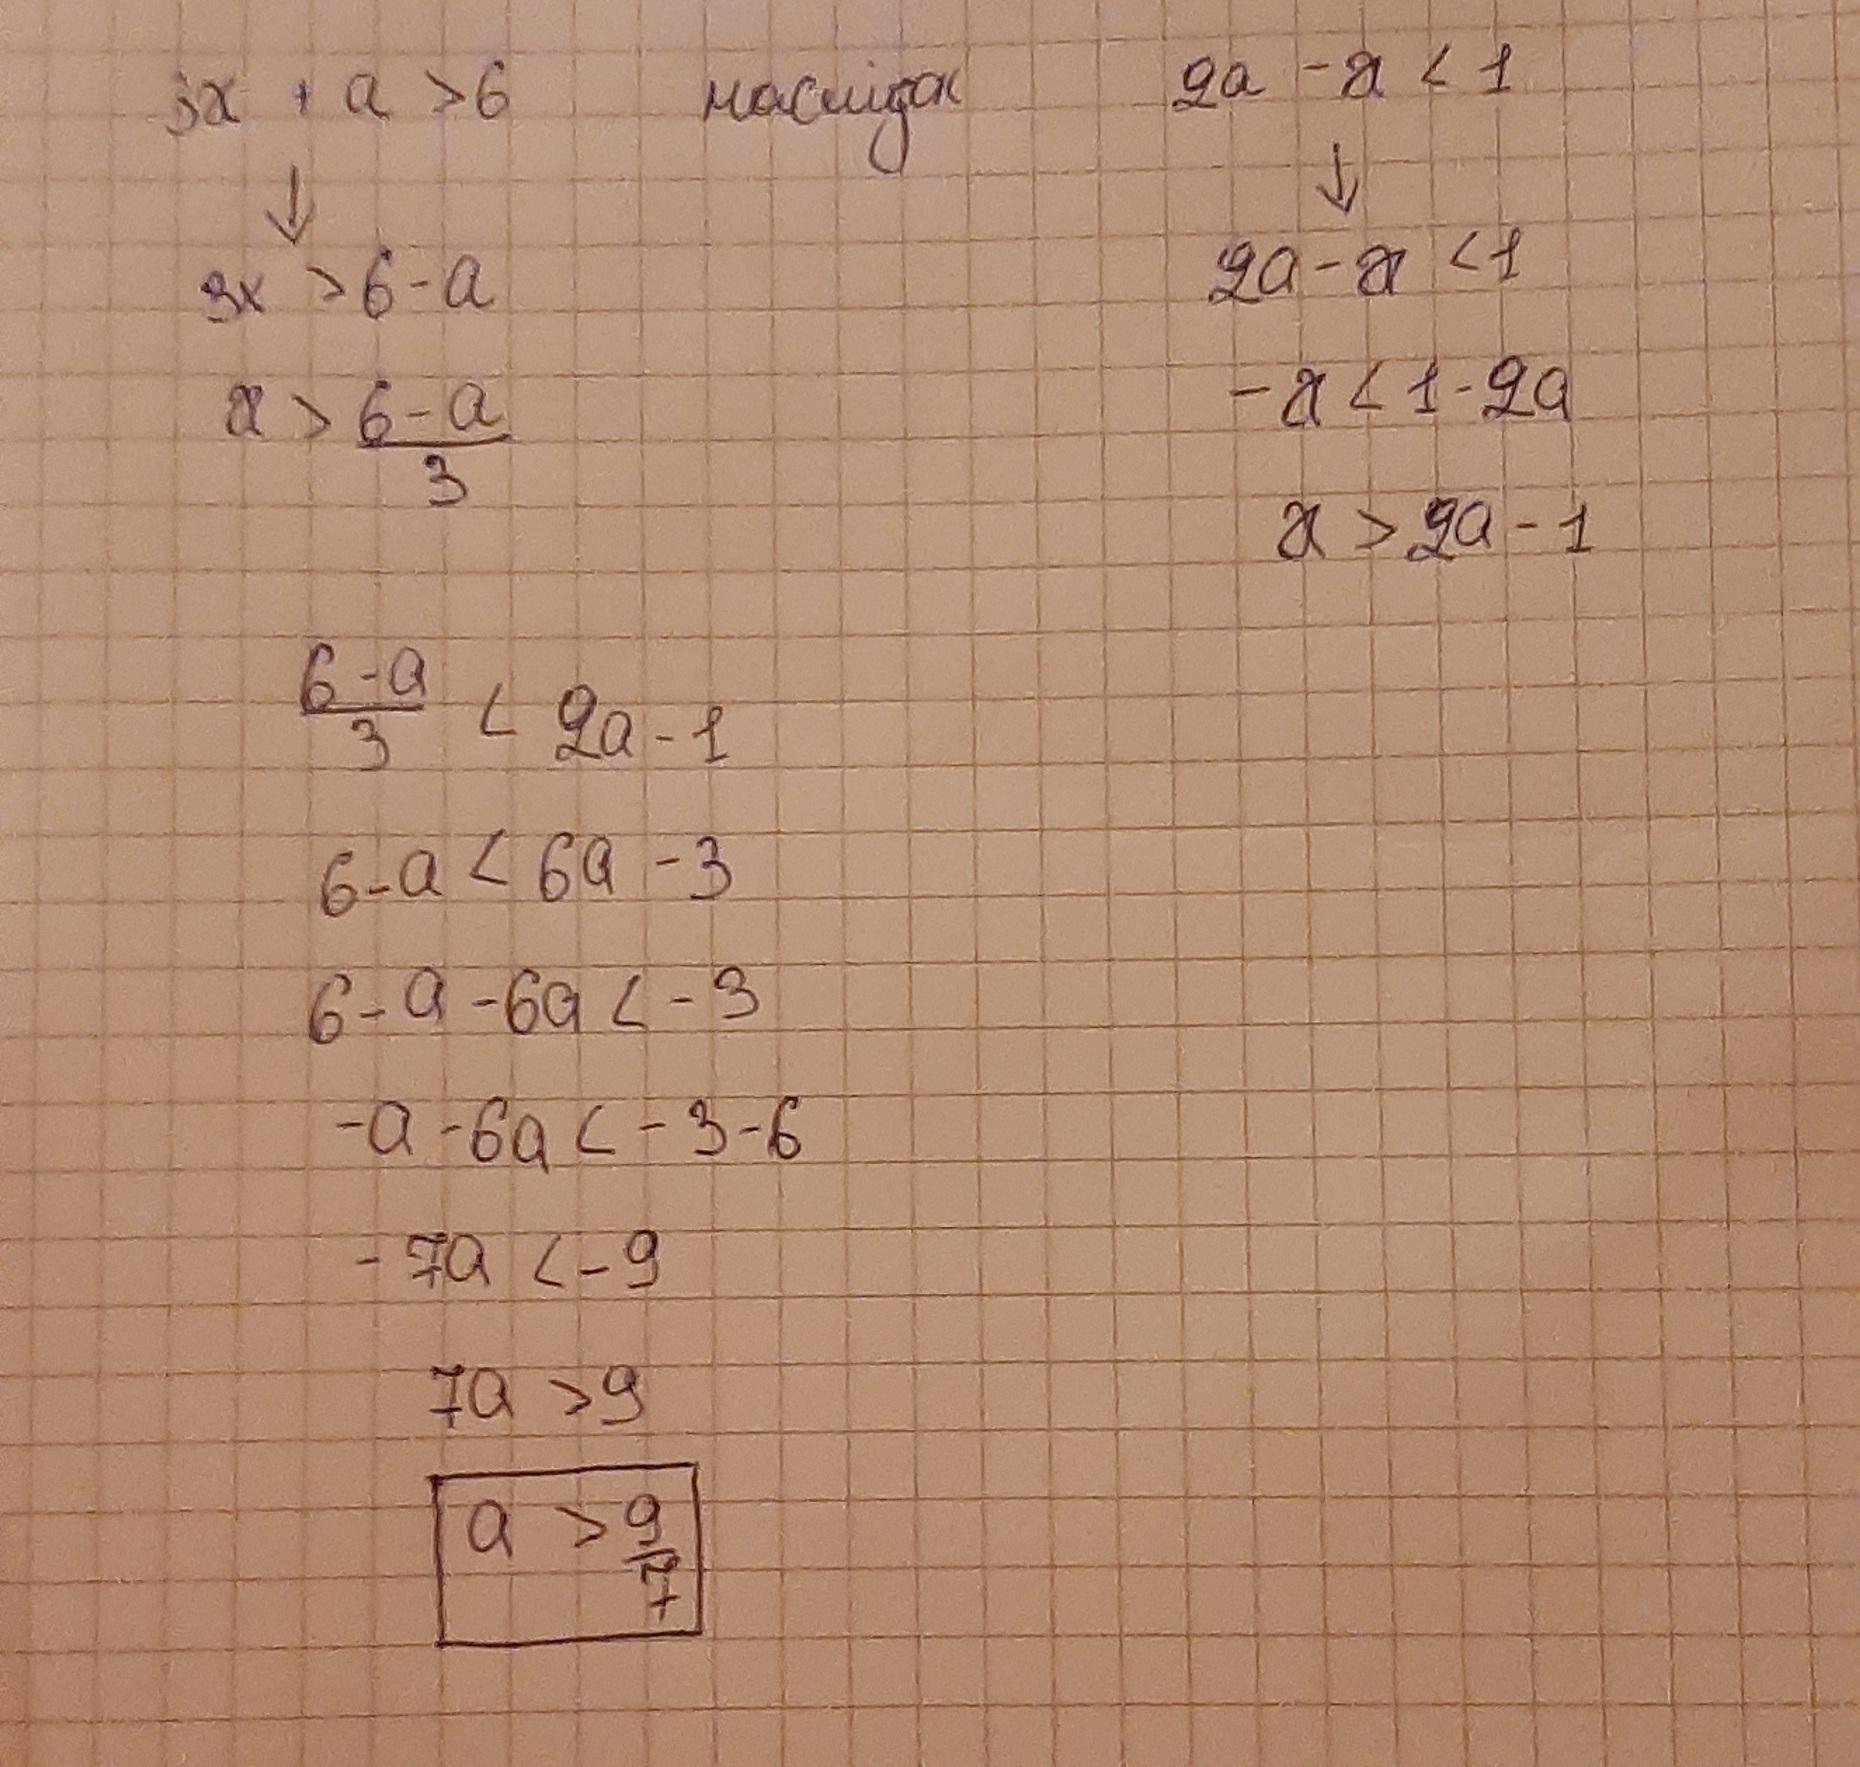 3x + a > 6 наслідок 2a - x < 1
↓ ↓
3x > 6 - a 2a - x < 1
x > (6 - a)/3 -x < 1 - 2a
x > 2a - 1
(6 - a)/3 < 2a - 1
6 - a < 6a - 3
6 - a - 6a < -3
-a - 6a < -3 - 6
-7a < -9
7a > 9
a > 9/7